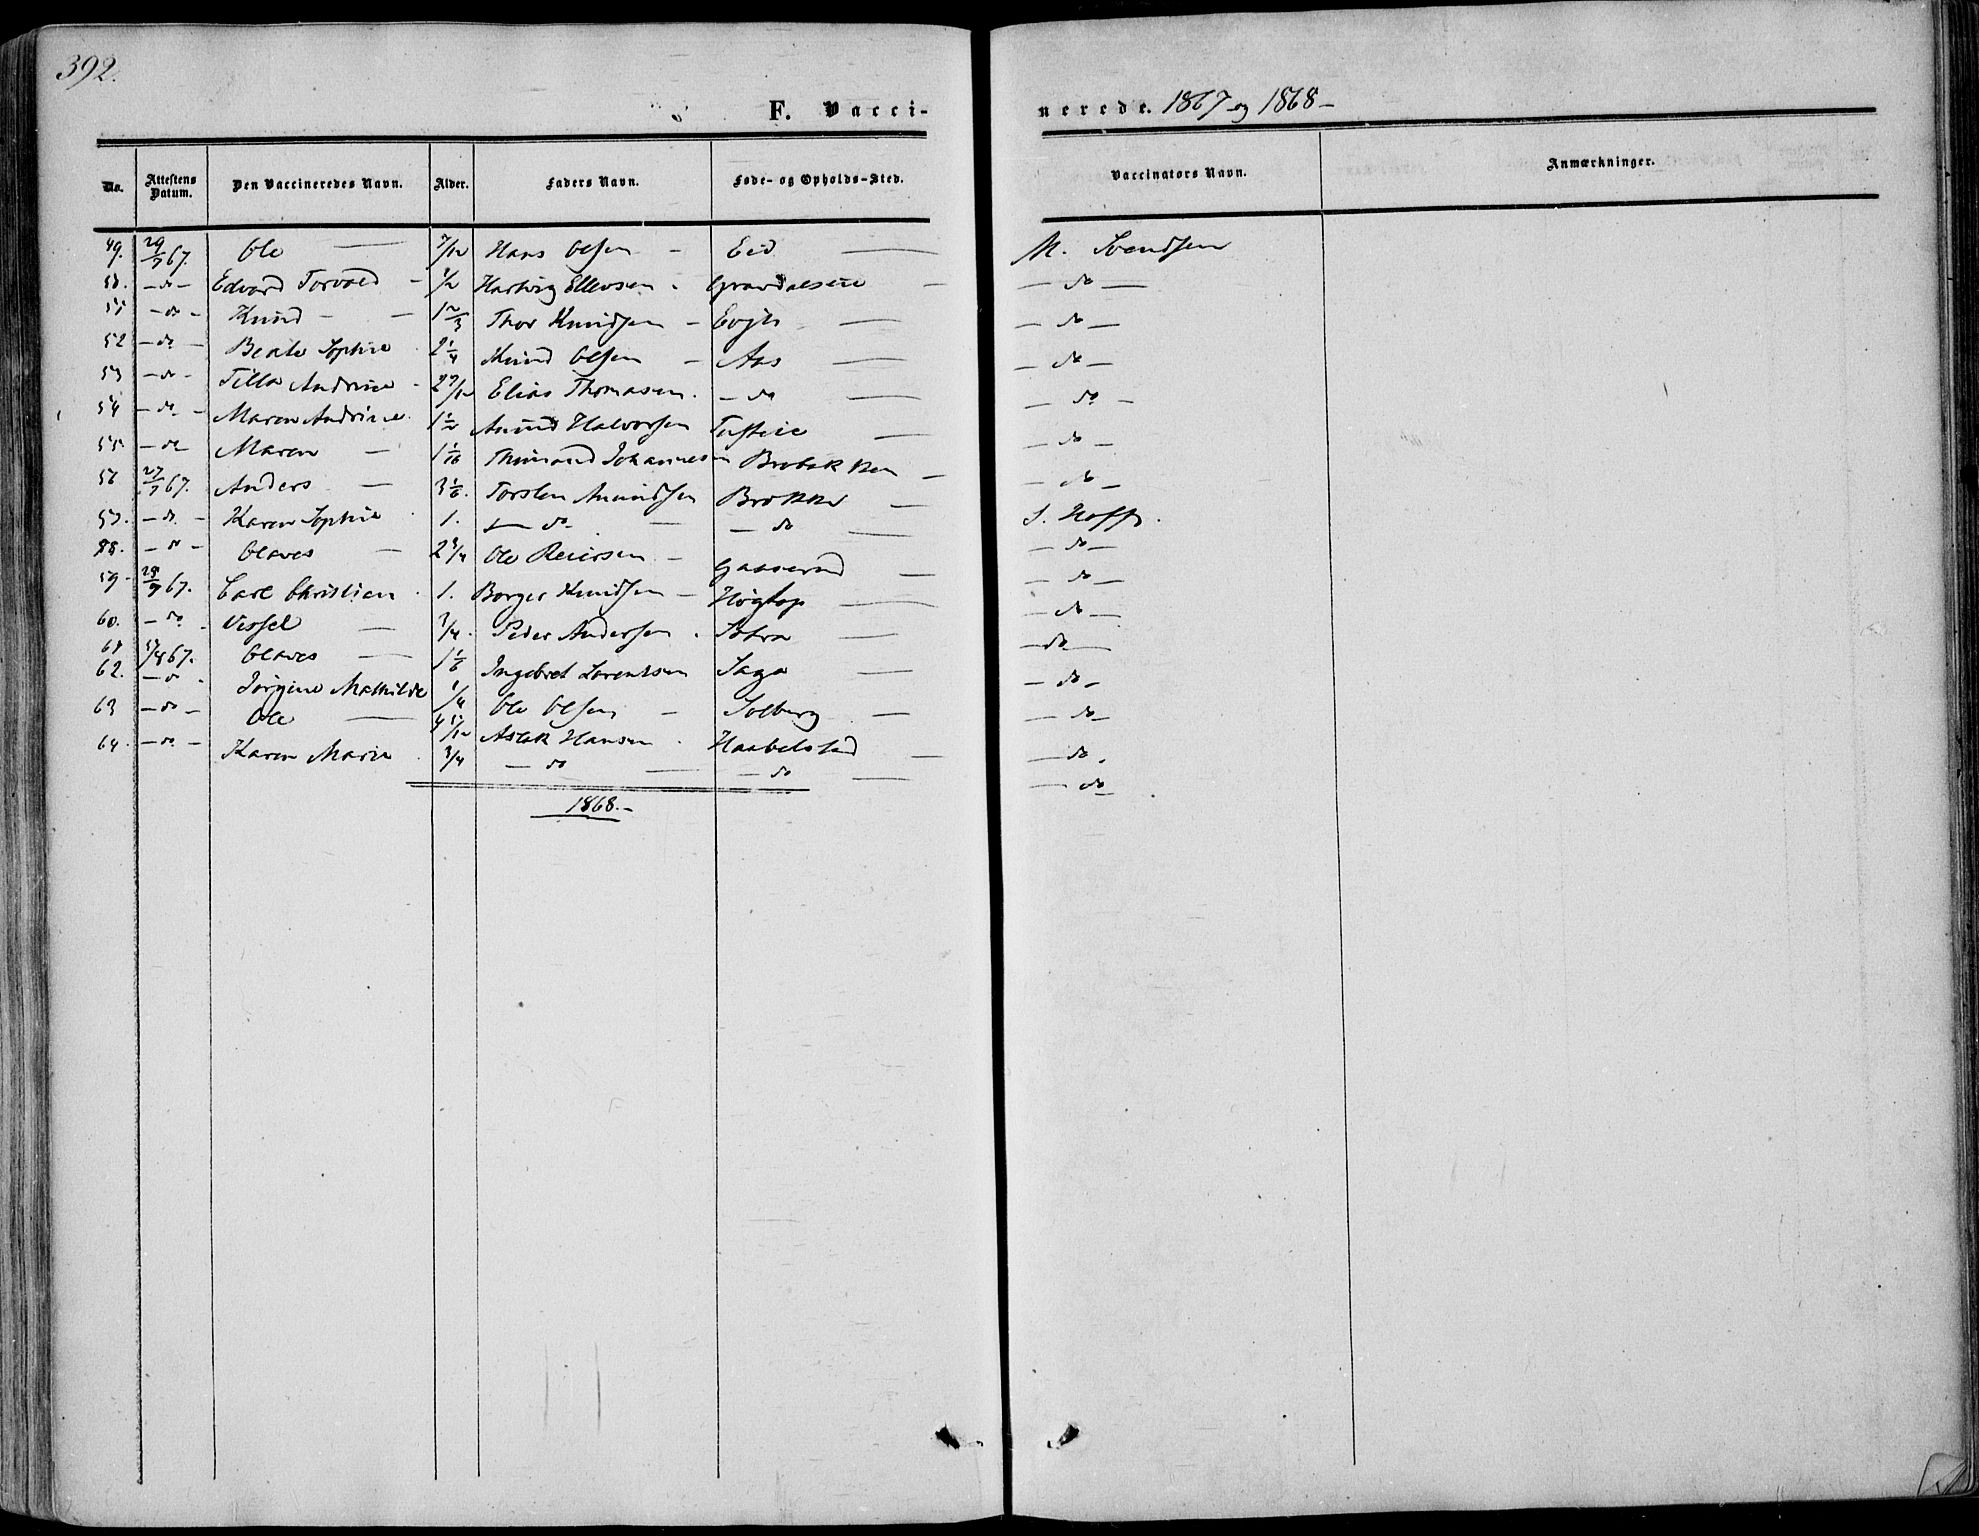 392.
F. Vacci-
nerede. 1867 og 1868-
No. Attestens Datum. Den Vaccineredes Navn. Alder. Faders Navn. Føde- og Opholds-Sted. Vaccinators Navn. Anmærkninger.
49. 29/7 67. Ole — 7/12 Hans Olsen - Eid — M. Svendsen
50. -do- Edvard Torvald - 1/2 Hartvig Ellevsen - — do —
51 -do- Knud - - 1 2/3 Thor Knudsen - — — do —
52 -do- Beate Sophie 2 1/4 Knud Olsen - Aas — — do —
53 -do- Tilla Andrine - 2 7/12 Elias Thomasen. - do — — do -
54 -do- Maren Andrine. 1 1/2 Amund Halvorsen — — do —
55 -do- Maren - 1 1/16 Johannesen - — do -
56 27/7 67. Anders - 3 1/6. Torsten Amundsen Brokke — S. Hoff.
57. -do- Karen Sophie 1. — do — — do — do —
58. -do- Olaves - 2 3/4 Ole Reiersen - Gaaserud — — do —
59. 28/7 67. Carl Christian. 1. Borger Knudsen - Høgtop — — do —
60. -do- Vessel — 3/4. Peder Andersen. — — do —
61 67. Olaves — 1 1/6 Ingebret Lorentsen Saga — — do -
62. -do- Jørgine Mathilde 1/4 Ole Olsen - Solberg — — do -
63 -do- Ole — 4 11/12 Aslak Hansen. Haabelstad — — do.
64. -do- Karen Marie. 3/4 — do — — do — — do
1868.-